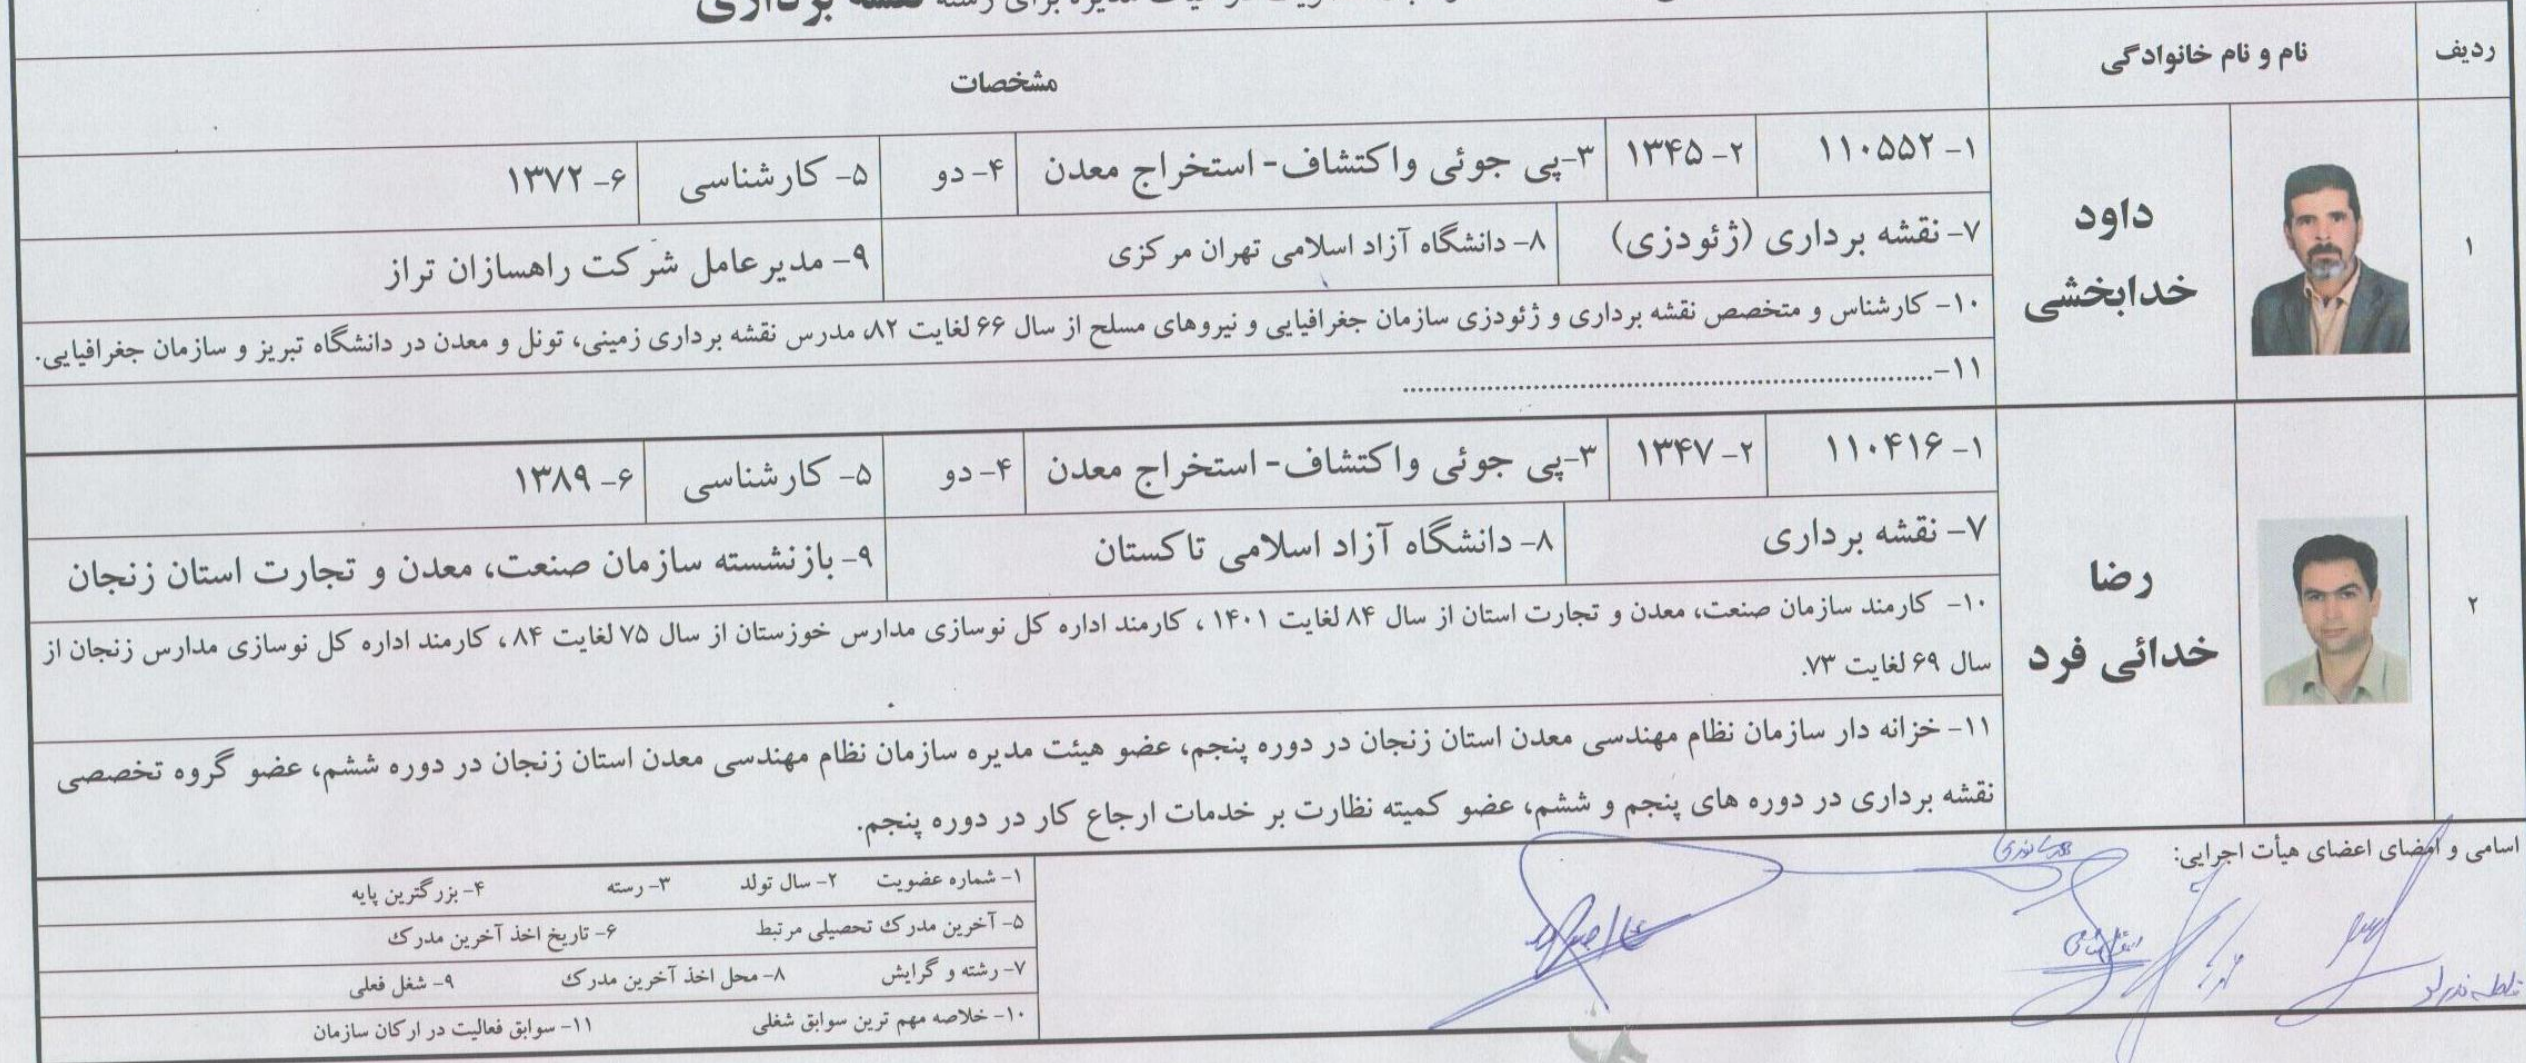 مدیره برای رشته نقشه برداری
ردیف
نام و نام خانوادگی
مشخصات
۱
داود
خدابخشی
۱- ۱۱۰۵۵۲
۲- ۱۳۴۵
۳-پی جوئی واکتشاف- استخراج معدن
۴- دو
۵- کارشناسی
۶- ۱۳۷۲
۷- نقشه برداری (ژئودزی)
۸- دانشگاه آزاد اسلامی تهران مرکزی
۹- مدیرعامل شرکت راهسازان تراز
۱۰- کارشناس و متخصص نقشه برداری و ژئودزی سازمان جغرافیایی و نیروهای مسلح از سال ۶۶ لغایت ۸۲، مدرس نقشه برداری زمینی، تونل و معدن در دانشگاه تبریز و سازمان جغرافیایی.
۱۱-......................................................................
۲
رضا
خدائی فرد
۱- ۱۱۰۴۱۶
۲- ۱۳۴۷
۳-پی جوئی واکتشاف- استخراج معدن
۴- دو
۵- کارشناسی
۶- ۱۳۸۹
۷- نقشه برداری
۸- دانشگاه آزاد اسلامی تاکستان
۹- بازنشسته سازمان صنعت، معدن و تجارت استان زنجان
۱۰- کارمند سازمان صنعت، معدن و تجارت استان از سال ۸۴ لغایت ۱۴۰۱ ، کارمند اداره کل نوسازی مدارس خوزستان از سال ۷۵ لغایت ۸۴ ، کارمند اداره کل نوسازی مدارس زنجان از
سال ۶۹ لغایت ۷۳.
۱۱- خزانه دار سازمان نظام مهندسی معدن استان زنجان در دوره پنجم، عضو هیئت مدیره سازمان نظام مهندسی معدن استان زنجان در دوره ششم، عضو گروه تخصصی
نقشه برداری در دوره های پنجم و ششم، عضو کمیته نظارت بر خدمات ارجاع کار در دوره پنجم.
اسامی و امضای اعضای هیأت اجرایی:
۱- شماره عضویت ۲- سال تولد ۳- رسته ۴- بزرگترین پایه
۵- آخرین مدرک تحصیلی مرتبط ۶- تاریخ اخذ آخرین مدرک
۷- رشته و گرایش ۸- محل اخذ آخرین مدرک ۹- شغل فعلی
۱۰- خلاصه مهم ترین سوابق شغلی ۱۱- سوابق فعالیت در ارکان سازمان